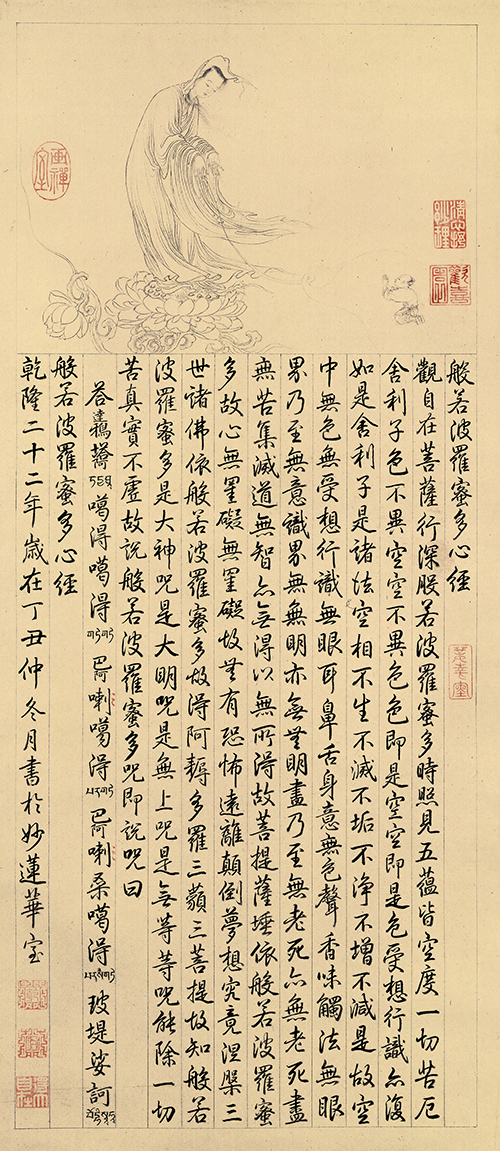 般若波羅蜜多心經
觀自在菩薩行深般若波羅蜜多時照見五蘊皆空度一切苦厄
舍利子色不異空空不異色色即是空空即是色受想行識亦復
如是舍利子是諸法空相不生不滅不垢不淨不增不減是故空
中無色無受想行識無眼耳鼻舌身意無色聲香味觸法無眼
界乃至無意識界無無明亦無無明盡乃至無老死亦無老死盡
無苦集滅道無智亦無得以無所得故菩提薩埵依般若波羅蜜
多故心無罣礙無罣礙故無有恐怖遠離顛倒夢想究竟涅槃三
世諸佛依般若波羅蜜多故得阿耨多羅三藐三菩提故知般若
波羅蜜多是大神咒是大明咒是無上咒是無等等咒能除一切
苦真實不虛故說般若波羅蜜多咒即說咒曰
答 噶得噶得 巴阿喇噶得 巴阿喇桑噶得 玻堤娑訶
般若波羅蜜多心經
乾隆二十二年歲在丁丑仲冬月書於妙蓮華室
畫禪室